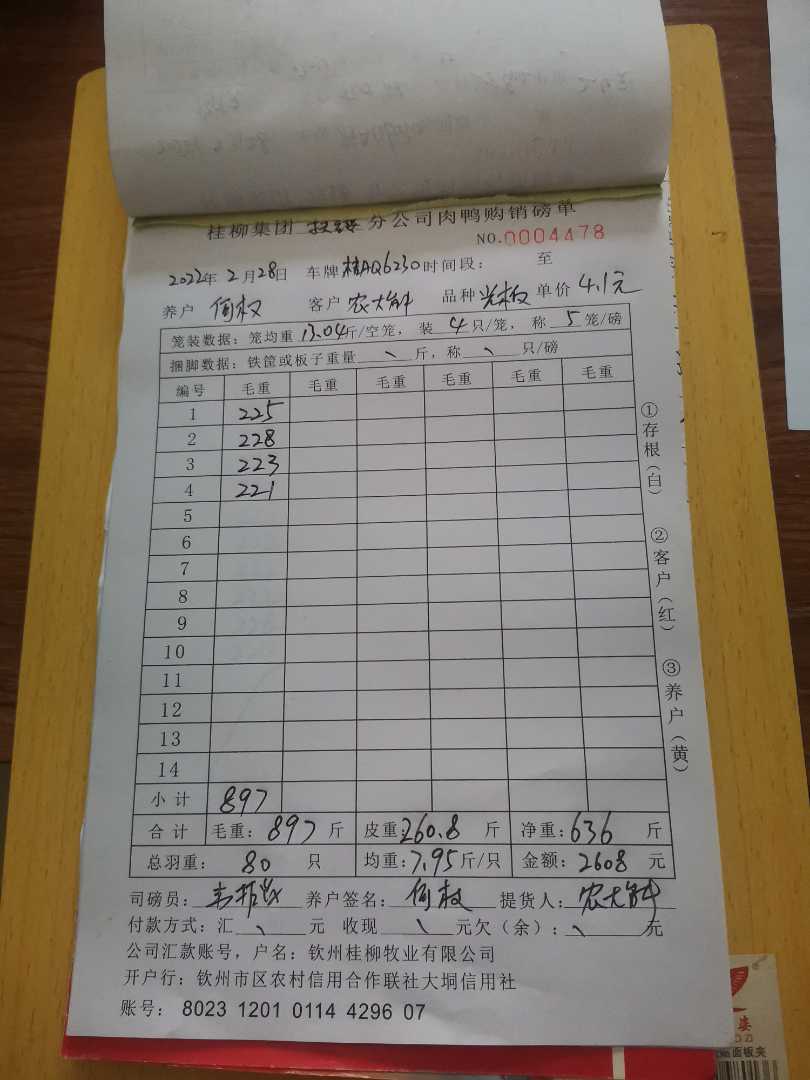 桂柳集团 分公司肉鸭购销磅单
NO.0004478
2022年2月28日 车牌桂AQ6230时间段： 至
养户 何权 客户 农大钟 品种 光板 单价 4.1元
笼装数据：笼均重13.04斤/空笼，装4只/笼，称5笼/磅
捆脚数据：铁筐或板子重量\斤，称\只/磅
编号 毛重 毛重 毛重 毛重 毛重 毛重
1 225
2 228
3 223
4 221
5
6
7
8
9
10
11
12
13
14
小计 897
合计 毛重：897斤 皮重：260.8斤 净重：636斤
总羽重：80只 均重：7.95斤/只 金额：2608元
司磅员： 养户签名：何权 提货人：农大钟
付款方式：汇\元 收现\元欠（余）：\元
公司汇款账号，户名：钦州桂柳牧业有限公司
开户行：钦州市区农村信用合作联社大垌信用社
账号：8023 1201 0114 4296 07
①存根（白）
②客户（红）
③养户（黄）
面板夹